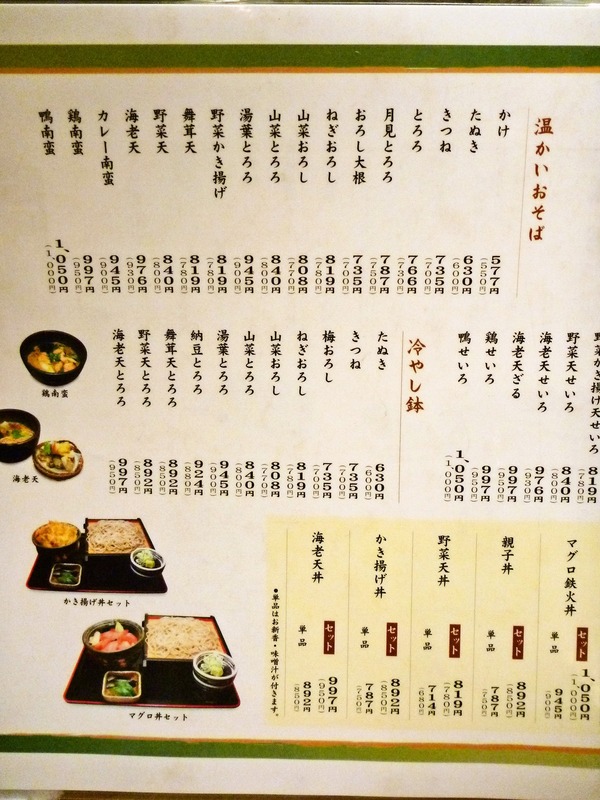 温かいおそば
かけ 577円 (550円)
たぬき 630円 (600円)
きつね 735円 (700円)
とろろ 766円 (730円)
月見とろろ 787円 (750円)
おろし大根 735円 (700円)
ねぎおろし 819円 (780円)
山菜おろし 808円 (770円)
山菜とろろ 840円 (800円)
湯葉とろろ 945円 (900円)
野菜かき揚げ 819円 (780円)
舞茸天 819円 (780円)
野菜天 840円 (800円)
海老天 976円 (930円)
カレー南蛮 945円 (900円)
鶏南蛮 997円 (950円)
鴨南蛮 1,050円 (1,000円)
野菜かき揚げ天せいろ 819円 (780円)
野菜天せいろ 840円 (800円)
海老天せいろ 976円 (930円)
海老天ざる 997円 (950円)
鶏せいろ 997円 (950円)
鴨せいろ 1,050円 (1,000円)
冷やし鉢
たぬき 630円 (600円)
きつね 735円 (700円)
梅おろし 735円 (700円)
ねぎおろし 819円 (780円)
山菜おろし 808円 (770円)
山菜とろろ 840円 (800円)
湯葉とろろ 945円 (900円)
納豆とろろ 924円 (880円)
舞茸天とろろ 892円 (850円)
野菜天とろろ 892円 (850円)
海老天とろろ 997円 (950円)
鶏南蛮
海老天
マグロ鉄火丼
セット 1,050円 (1,000円)
単品 945円 (900円)
親子丼
セット 892円 (850円)
単品 787円 (750円)
野菜天丼
セット 819円 (780円)
単品 714円 (680円)
かき揚げ丼
セット 892円 (850円)
単品 787円 (750円)
海老天丼
セット 997円 (950円)
単品 892円 (850円)
●単品はお新香・味噌汁が付きます。
かき揚げ丼セット
マグロ丼セット